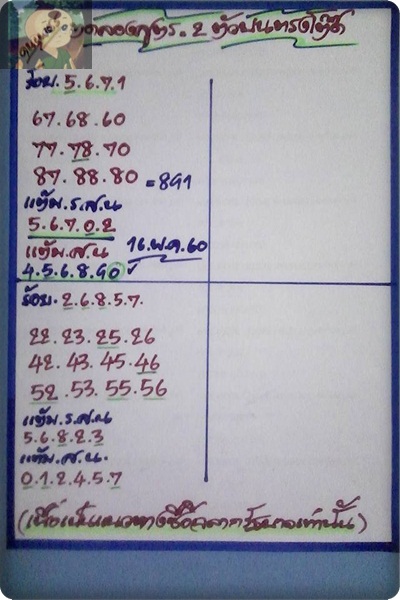 ทดลองสูตร. 2 ตัวบนตรงโต๊ด
ร้อย. 5.6.7.1
67.68.60
77.78.70
87.88.80 = 891
แต้ม.ร.ส.น
5.6.7.0.2
แต้ม.ส.น 16.พ.ค.60
4.5.6.8.90 ✓
ร้อย. 2.6.8.5.7.
22.23.25.26
42.43.45.46
52.53.55.56
แต้ม.ร.ส.น
5.6.8.2.3
แต้ม.ส.น.
0.1.2.4.5.7
(เพื่อเป็นแนวทางซื้อสลากรัฐบาลเท่านั้น)